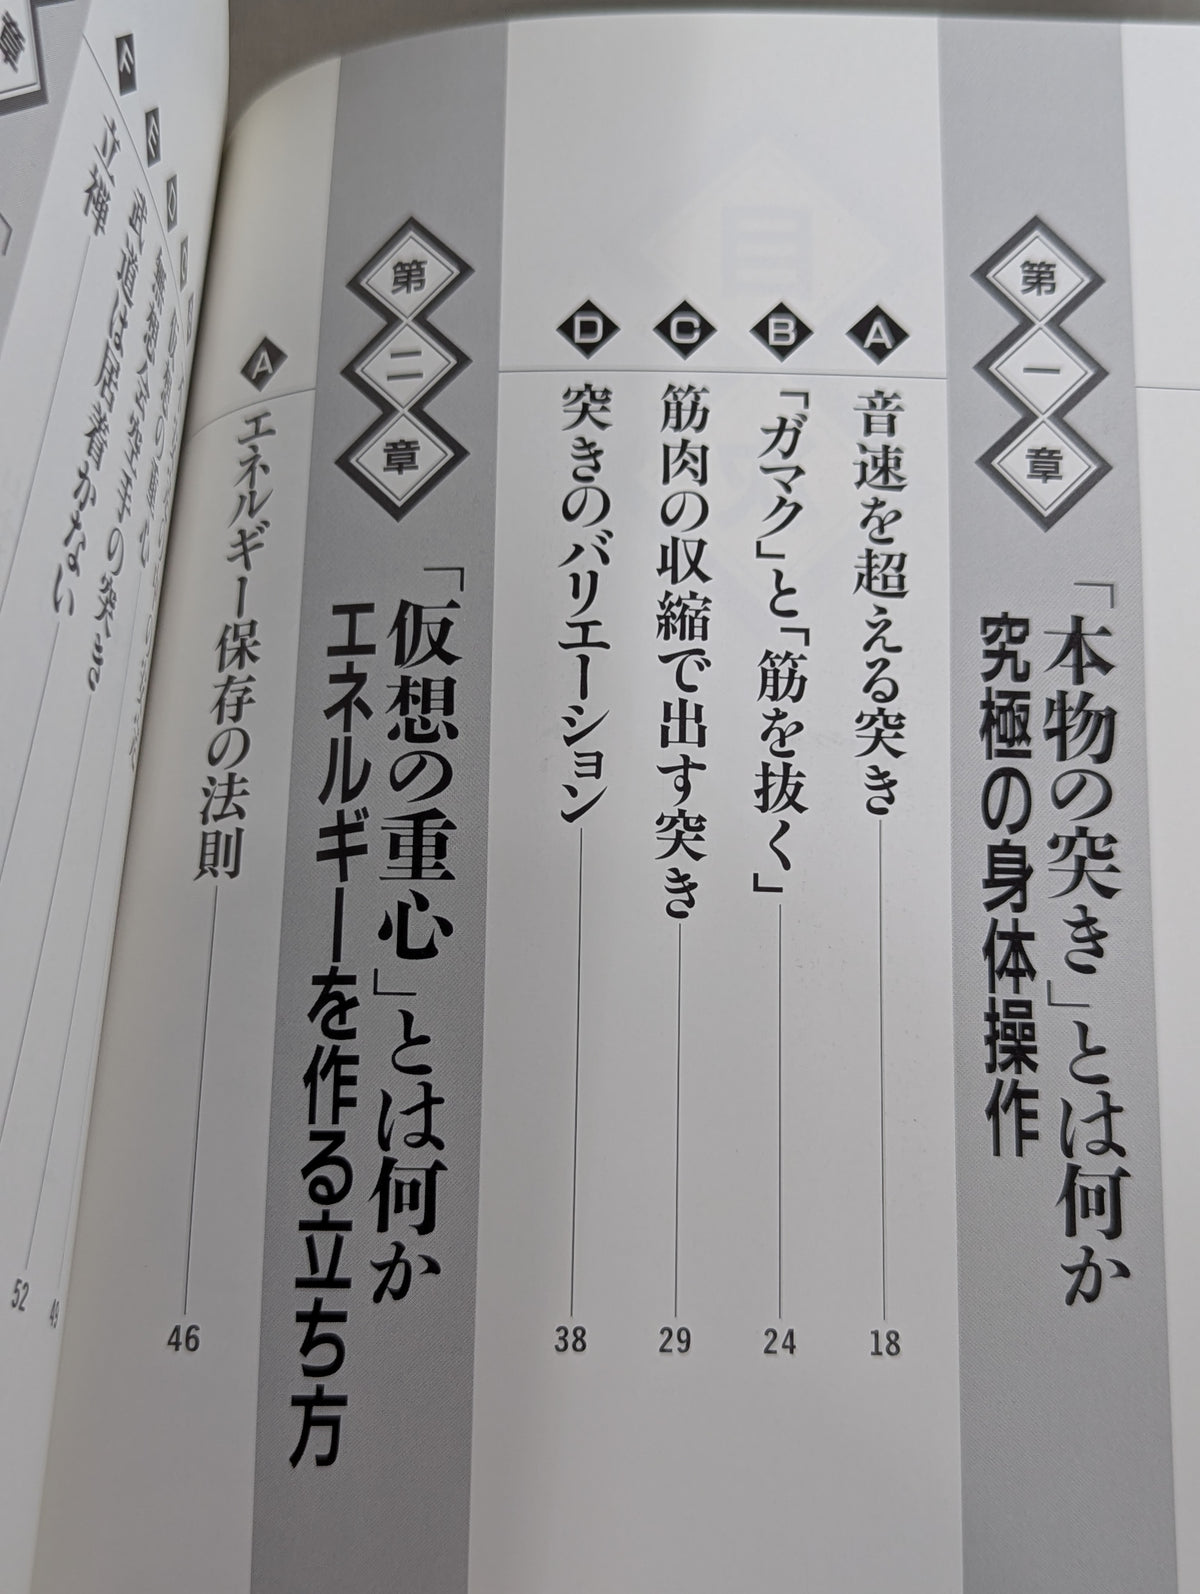 第一章
「本物の突き」とは何か
究極の身体操作
A 音速を超える突き 18
B 「ガマク」と「筋を抜く」 24
C 筋肉の収縮で出す突き 29
D 突きのバリエーション 38
第二章
「仮想の重心」とは何か
エネルギーを作る立ち方
A エネルギー保存の法則 46
E 武道は居着かない 49
F 立禅 52
章